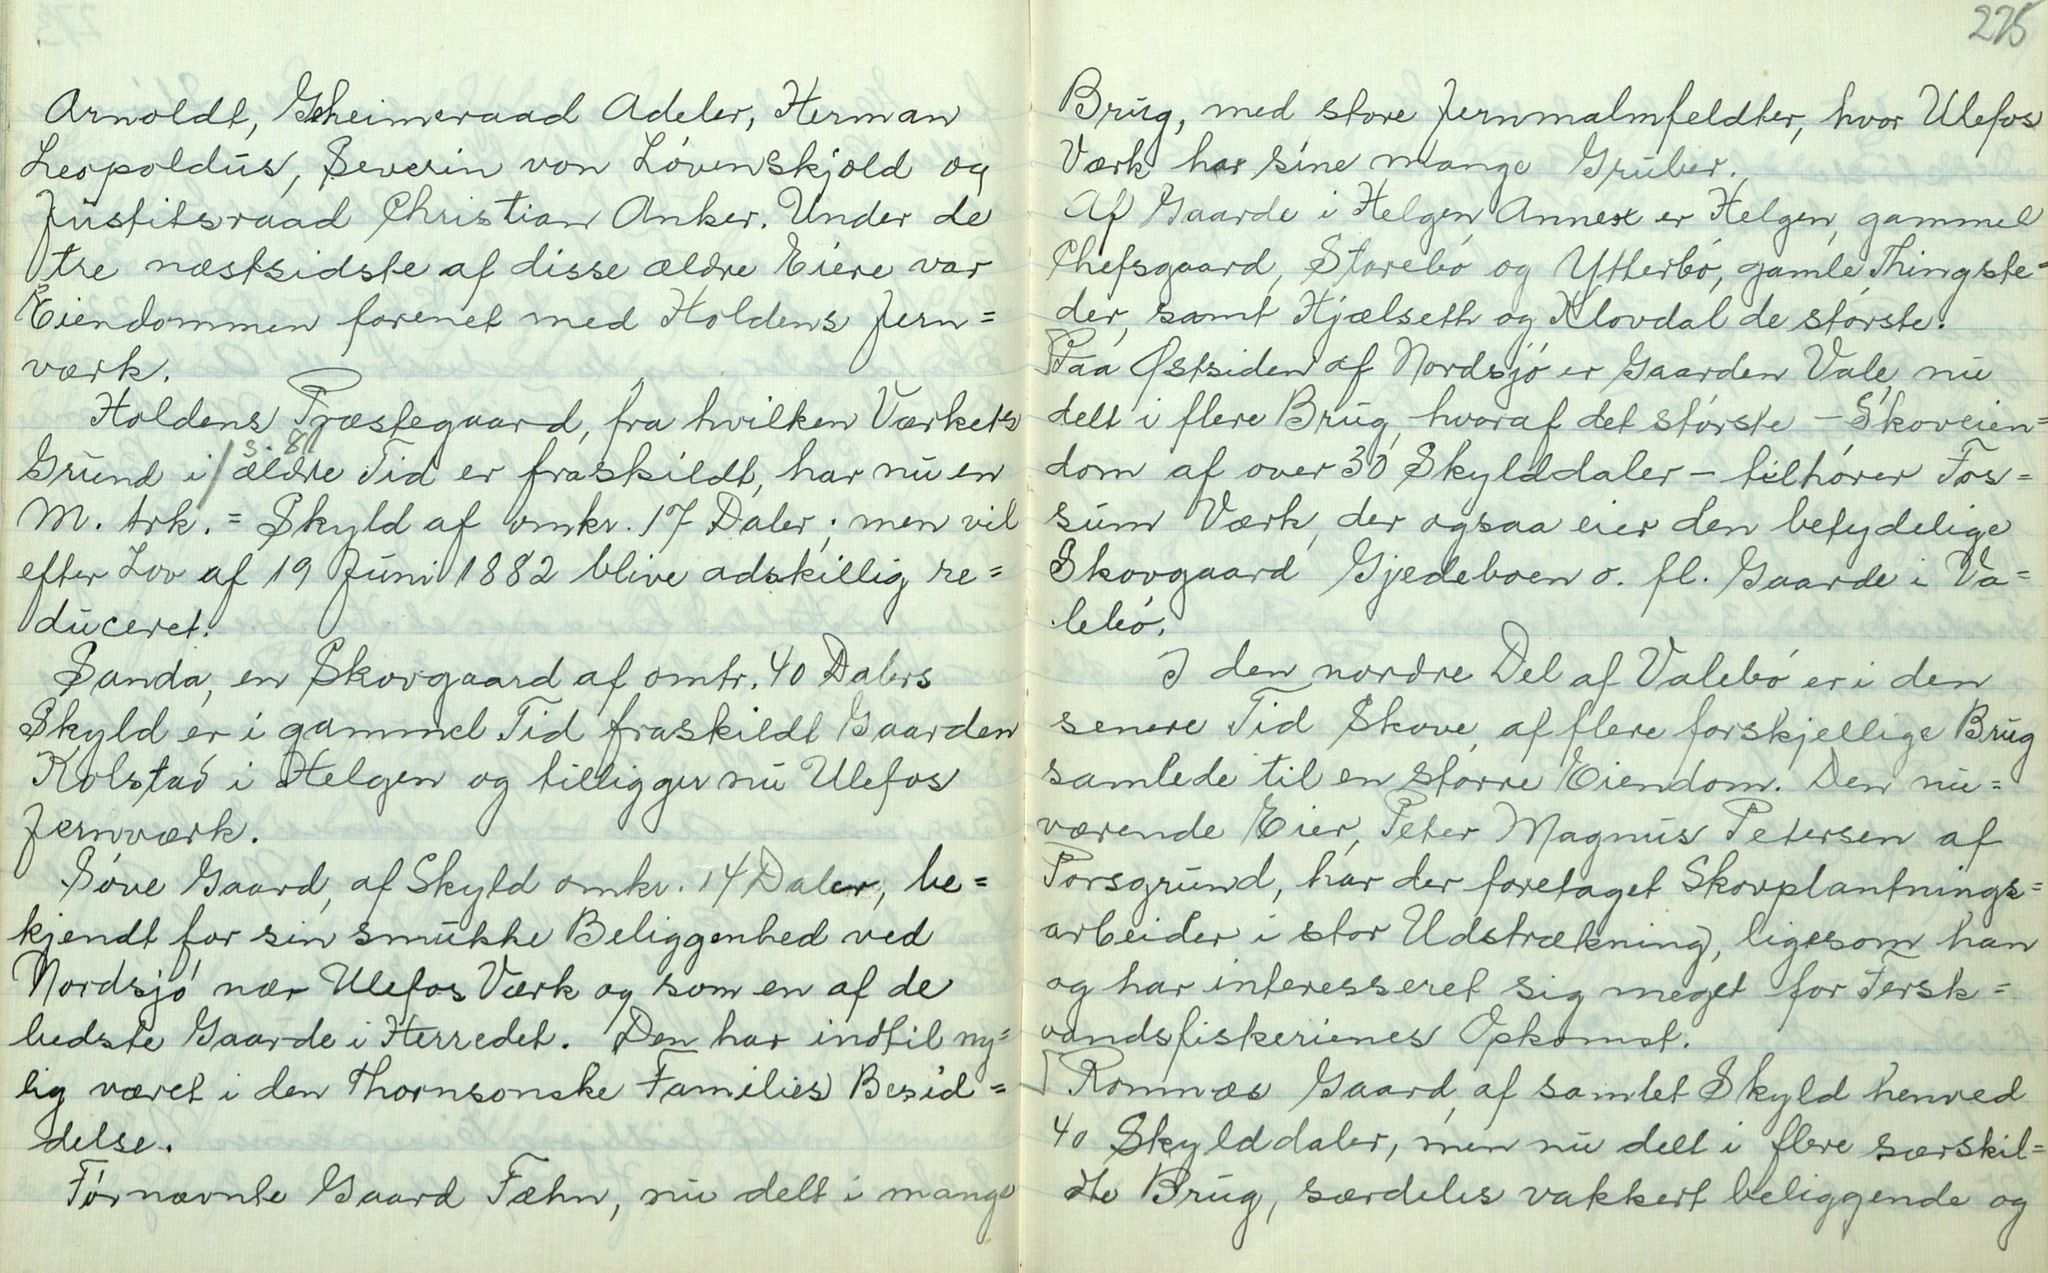 Arnoldt, Geheimeraad Adeler, Herman
Leopoldus, Severin von Lövenskjold og
Justitsraad Christian Anker. Under de
tre næstsidste af disse ældre Eiere var
Eiendommen forenet med Holdens Jern=
værk.
Holdens Præstegaard, fra hvilken Værkets
s. 81
Grund i ældre Tid er fraskildt, har nu en
M. trk. = Skyld af omkr. 17 Daler; men vil
efter Lov af 19 Juni 1882 blive adskillig re=
duceret.
Sanda, en Skovgaard af omtr. 40 Dalers
Skyld er i gammel Tid fraskildt Gaarden
Kolstad i Helgen og tilligger nu Ulefos
Jernværk.
Söve Gaard, af Skyld omkr. 14 Daler, be=
kjendt for sin smukke Beliggenhed ved
Nordsjö nær Ulefos Værk og som en af de
bedste Gaarde i Herredet. Den har indtil ny=
lig været i den Thornsonske Families Besid=
delse.
Förnævnte Gaard Fæhn, nu delt i mange
275
Brug, med store Jernmalmfeldter, hvor Ulefos
Værk har sine mange Gruber.
Af Gaarde i Helgen Annex er Helgen, gammel
Chefsgaard, Storebö og Ytterbö, gamle Thingste=
der, samt Hjælseth og Klovdal de störste.
Paa Östsiden af Nordsjö er Gaarden Vale, nu
delt i flere Brug, hvoraf det störste – Skoveien=
dom af over 30 Skylddaler – tilhörer Fos=
sum Værk, der ogsaa eier den betydelige
Skovgaard Gjedeboen o. fl. Gaarde i Va=
lebö.
I den nordre Del af Valebö er i den
senere Tid Skove, af flere forskjellige Brug
samlede til en större Eiendom. Den nu=
værende Eier, Peter Magnus Petersen af
Porsgrund, har der foretaget Skovplantnings=
arbeider i stor Udstrækning, ligesom han
og har interesseret sig meget for Fersk=
vandsfiskerienes Opkomst.
Romnæs Gaard, af samlet Skyld henved
40 Skylddaler, men nu delt i flere særskil=
dte Brug, særdeles vakkert beliggende og